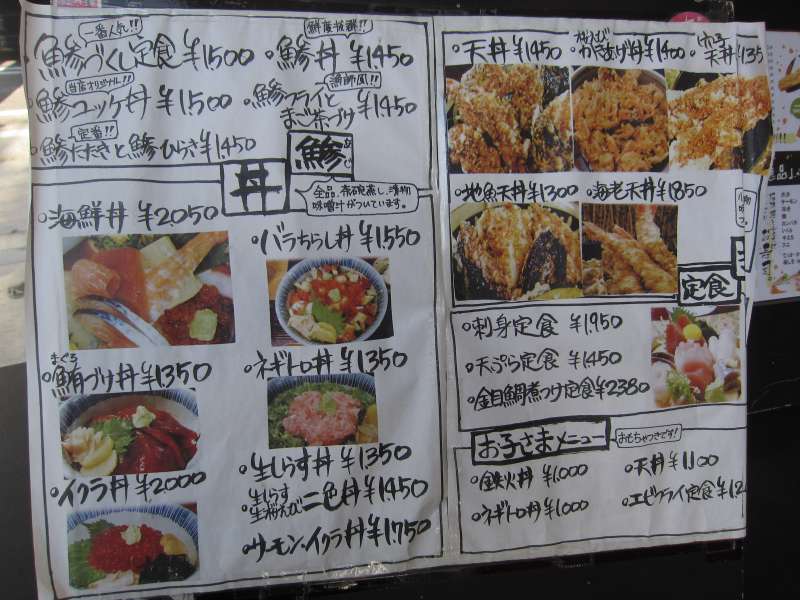 一番人気!!
鯵づくし定食 ¥1500
鮮度抜群!!
・鯵丼 ¥1450
当店オリジナル!!
・鯵ユッケ丼 ¥1,500
漁師風!!
・鯵フライと
まご茶づけ ¥1450
定番!!
・鯵たたきと鯵ひらき ¥1,450
鯵
あじ
丼
全品、茶碗蒸し、漬物
味噌汁がついています。
・海鮮丼 ¥2050
・バラちらし丼 ¥1,550
まぐろ
・鮪づけ丼 ¥1350
・ネギトロ丼 ¥1350
・イクラ丼 ¥2,000
・生しらす丼 ¥1350
・生しらす
生桜えび 二色丼 ¥1450
・サーモン・イクラ丼 ¥1,750
・天丼 ¥1450
かきあげ丼 ¥1400
天丼 ¥135
・地魚天丼 ¥1300
・海老天丼 ¥1850
定食
・刺身定食 ¥1,950
・天ぷら定食 ¥1450
・金目鯛煮つけ定食 ¥2380
お子さまメニュー
おもちゃつきです!!
・鉄火丼 ¥1,000
・天丼 ¥1100
・ネギトロ丼 ¥1,000
・エビフライ定食 ¥12